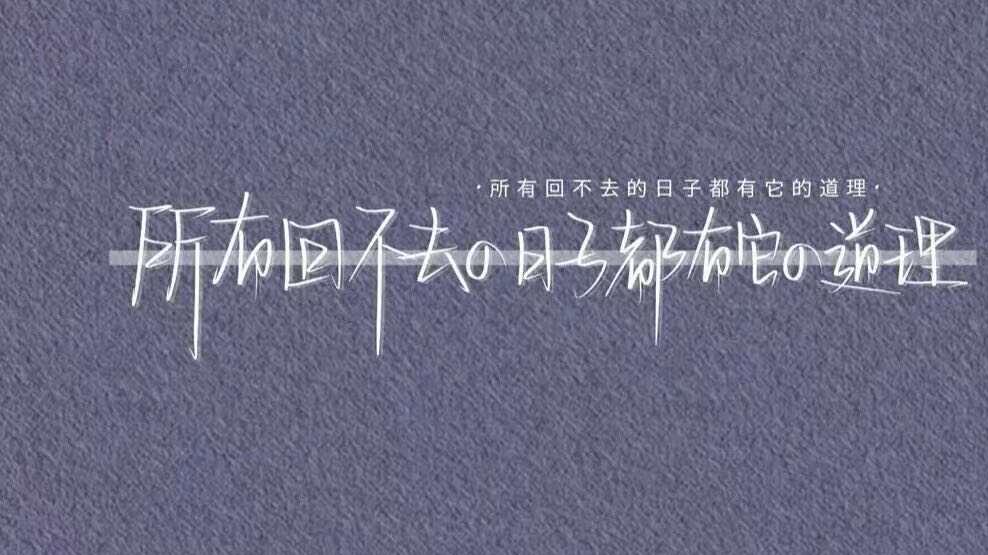 ·所有回不去的日子都有它的道理·
所有回不去の日子都有它の道理